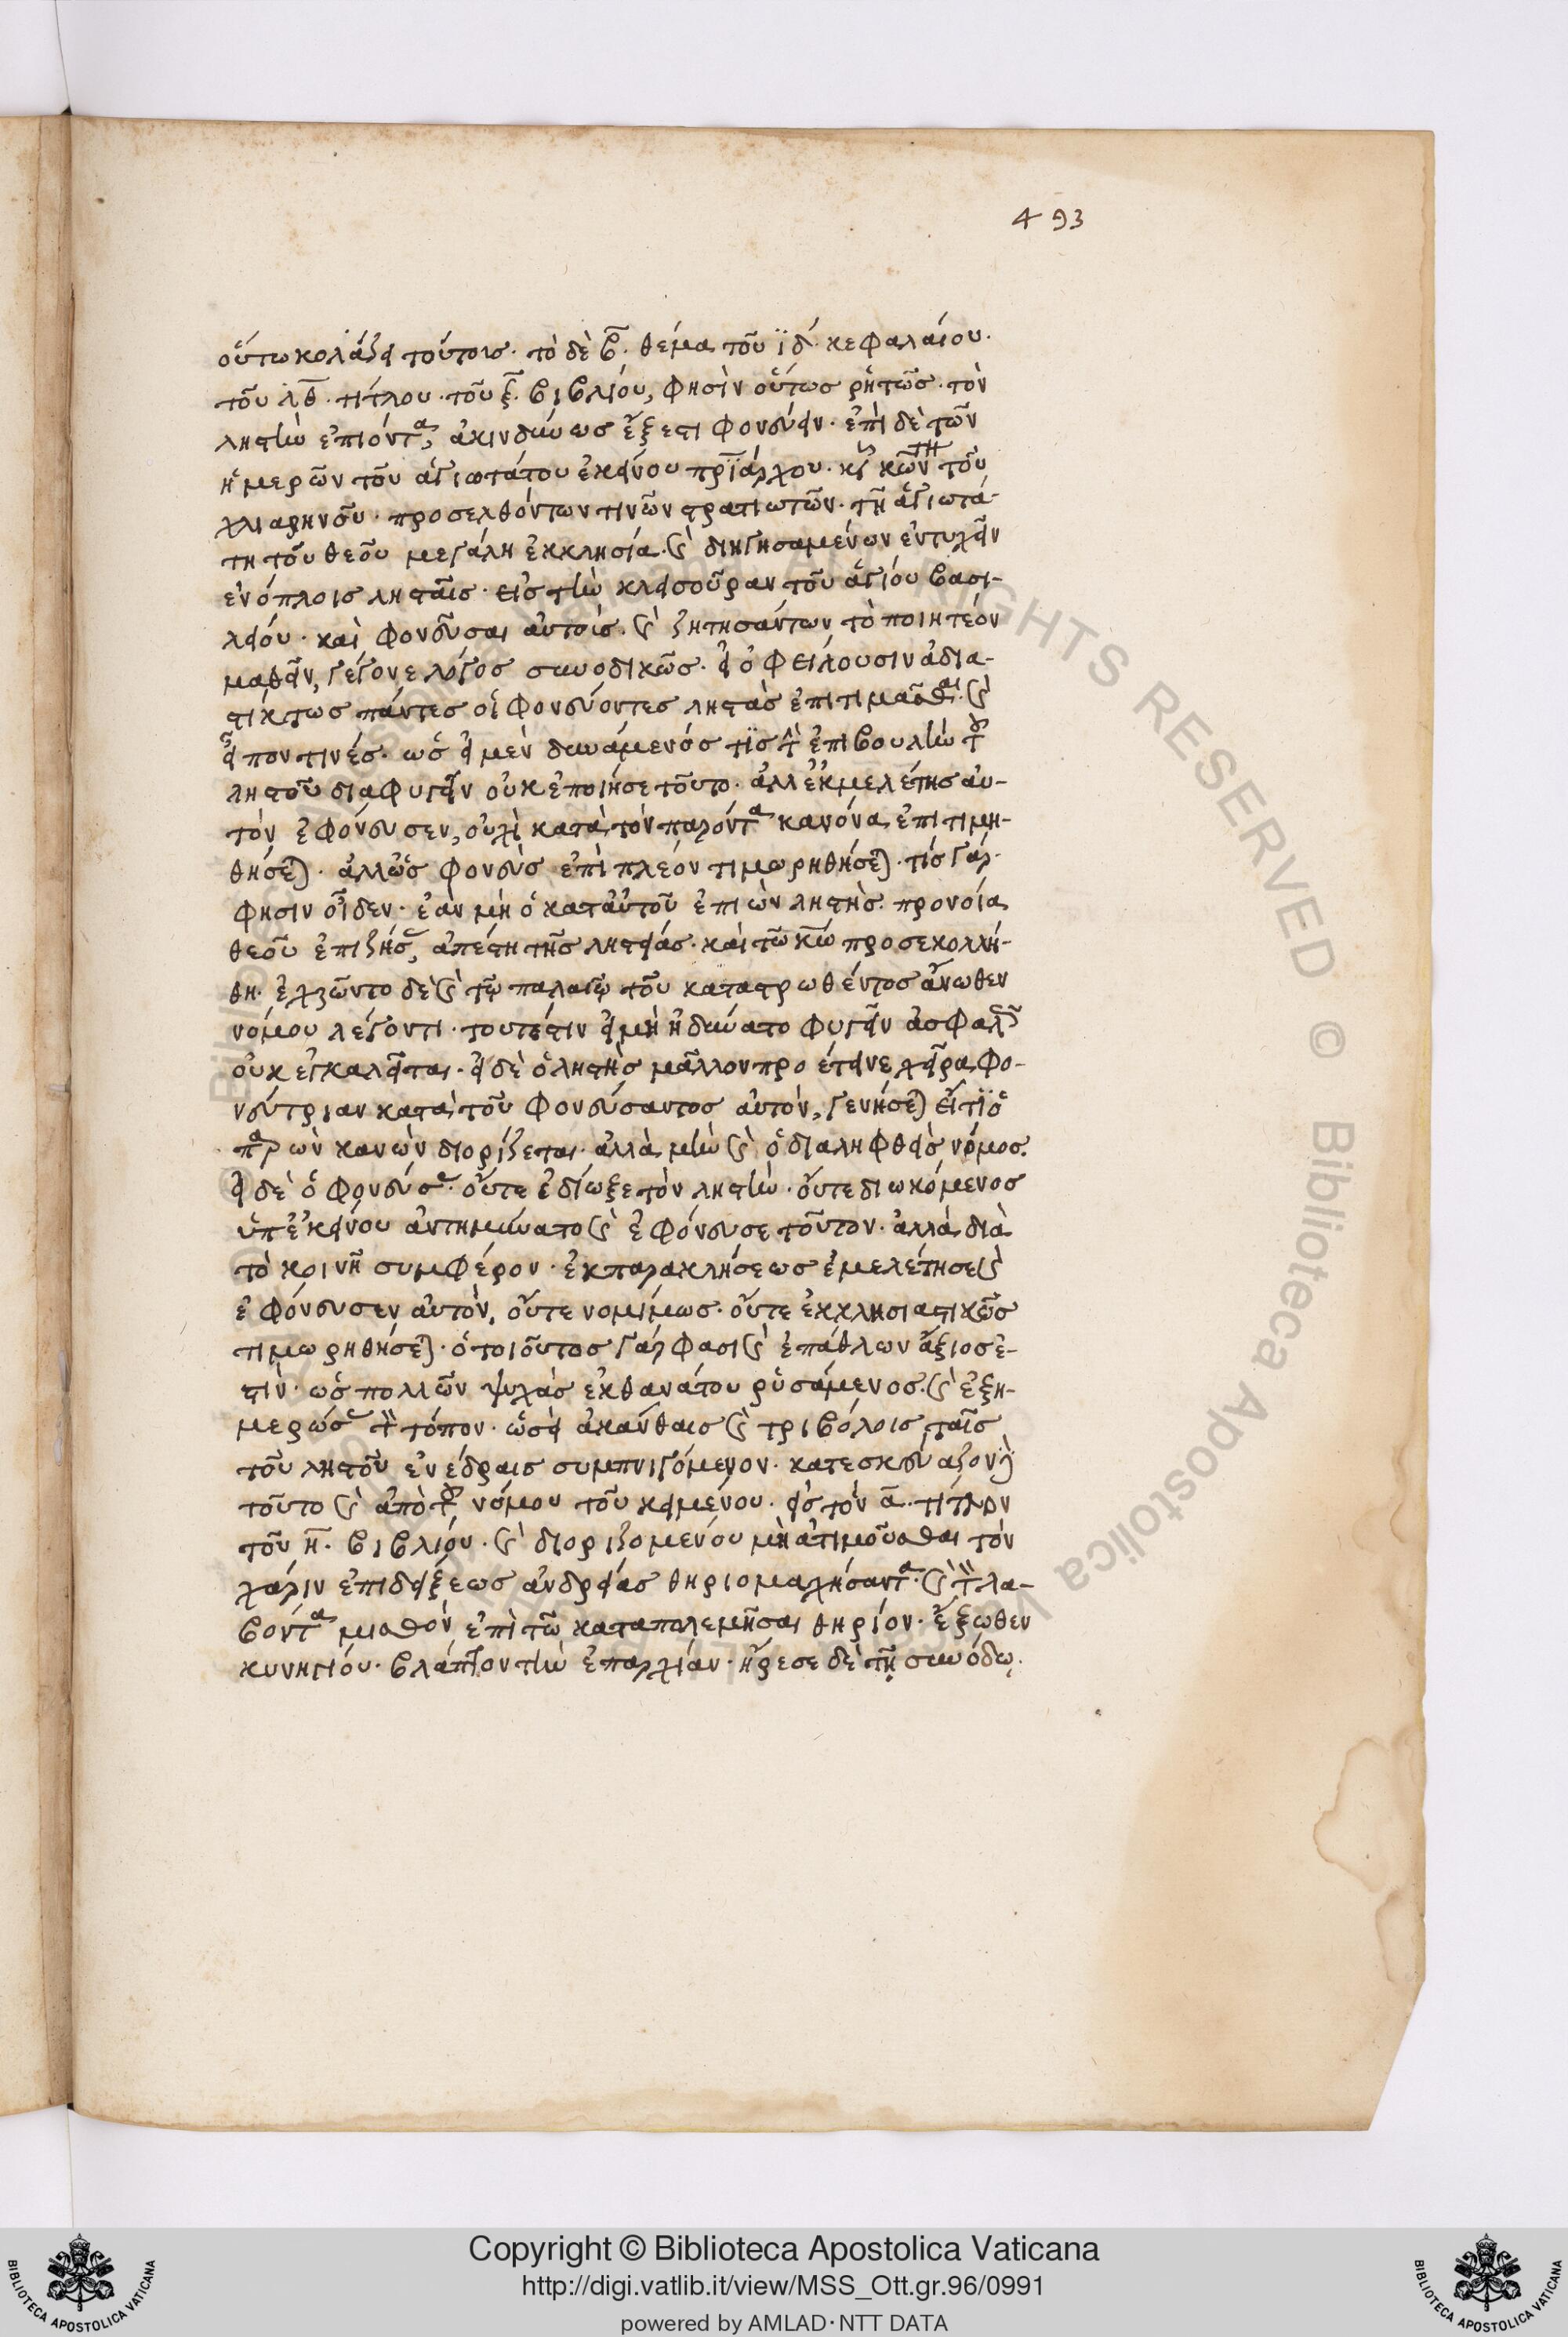 493
οὕτω κολάζει τούτοις· τὸ δὲ β̅· θέμα τοῦ ϊδ´· κεφαλαίου·
τοῦ λθ̅· τίτλου· τοῦ ξ̅· βιβλίου, φησὶν οὕτως ῥητῶς· τὸν
ληστὴν ἐπιόντα, ἀκινδύνως ἔξεστι φονεύειν· ἐπὶ δὲ τῶν
ἡμερῶν τοῦ ἁγιωτάτου ἐκείνου πρϊάρχου· κῦ κων̅στ τοῦ
χλιαρηνοῦ· προσελθόντων τινῶν στρατιωτῶν· τῆ ἁγιωτά-
τη τοῦ θεοῦ μεγάλη ἐκκλησία· καὶ διηγησαμένων ἐντυχεῖν
ἐνόπλοις λησταῖς· εἰς τὴν κλεισοῦραν τοῦ ἁγίου βασι-
λείου· καὶ φονεῦσαι αὐτοὺς· καὶ ζητησάντων τὸ ποιητέον
μαθεῖν, γέγονε λόγος συνοδικῶς· εἰ ὀφείλουσιν ἀδια-
στίκτως πάντες οἱ φονεύοντες ληστὰς ἐπιτιμᾶσθαι· καὶ
εἶπον τινές· ὡς εἰ μὲν δυνάμενός τϊς τὴν ἐπιβουλὴν τοῦ
ληστοῦ διαφυγεῖν οὐκ ἐποίησε τοῦτο· ἀλλ ἐκμελέτης αὐ-
τὸν ἐφόνευσεν, οὐχὶ κατὰ τὸν παρόντα κανόνα ἐπιτιμη-
θήσεται· ἀλλ ὡς φονεὺς ἐπὶ πλέον τιμωρηθήσεται· τίς γάρ
φησιν οἶδεν· ἐὰν μὴ ὁ κατ αὐτοῦ ἐπιὼν ληστὴς· προνοία
θεοῦ ἐπιζήσας, ἀπέστη τῆς ληστείας· καὶ τῶ κ̅ω προσεκολλή-
θη· ἐχρῶντο δὲ καὶ τῷ παλαιῷ τοῦ καταστρωθέντος ἄνωθεν
νόμου λέγοντι· τουτέστιν εἰ μὴ ἠδύνατο φυγεῖν ἀσφαλῶς
οὐκ ἐγκαλεῖται· εἰ δὲ ὁ ληστὴς μᾶλλον προέτεινε χεῖρα φο-
νεύτριαν κατὰ τοῦ φονεύσαντος αὐτὸν, γενήσεται εἴτι ὁ
παρὼν κανὼν διορίζεται· ἀλλὰ μὴν καὶ ὁ διαληφθεὶς νόμος·
εἰ δὲ ὁ φονεύσας· οὔτε ἐδίωξε τὸν ληστὴν· οὔτε διωκόμενος
ὑπ ἐκείνου ἀντημύνατο καὶ ἐφόνευσε τοῦτον· ἀλλὰ διὰ
τὸ κοινῆ συμφέρον· ἐκ παρακλήσεως ἐμελέτησε καὶ
ἐφόνευσεν αὐτὸν, οὔτε νομίμως· οὔτε ἐκκλησιαστικῶς
τιμωρηθήσεται· ὁ τοιοῦτος γάρ φασι καὶ ἐπάθλων ἄξιος ἐ-
στὶν· ὡς πολλῶν ψυχὰς ἐκ θανάτου ῥυσάμενος· καὶ ἐξη-
μερώσας τὸν τόπον· ὡσεὶ ἀκάνθαις καὶ τριβόλοις ταῖς
τοῦ ληστοῦ ἐνέδραις συμπνιγόμενον· κατεσκεύαζον δὲ
τοῦτο καὶ ἀπὸ τοῦ νόμου τοῦ κειμένου· εἰς τὸν α̅· τίτλον
τοῦ η̅· βιβλίου· καὶ διοριζομένου μὴ ἀτιμοῦσθαι τὸν
χάριν ἐπιδείξεως ἀνδρείας θηριομαχήσαντα· καὶ τὸν λα-
βόντα μισθὸν ἐπὶ τῶ καταπολεμῆσαι θηρίον· ἔξωθεν
κυνηγίου· βλάπτον τὴν ἐπαρχίαν· ἤρεσε δὲ τῇ συνόδῳ·
Copyright © Biblioteca Apostolica Vaticana
http://digi.vatlib.it/view/MSS_Ott.gr.96/0991
powered by AMLAD·NTT DATA